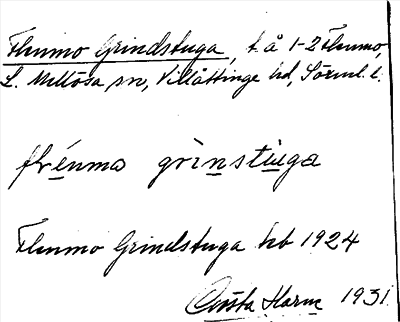 Flunmo Grindstuga, t. å 1-2 Flunmo,
L. Mellösa sn, Villåttinge hd, Sörml. l.
grìnstùga
Flunmo Grindstuga hb 1924
Gösta Harm 1931